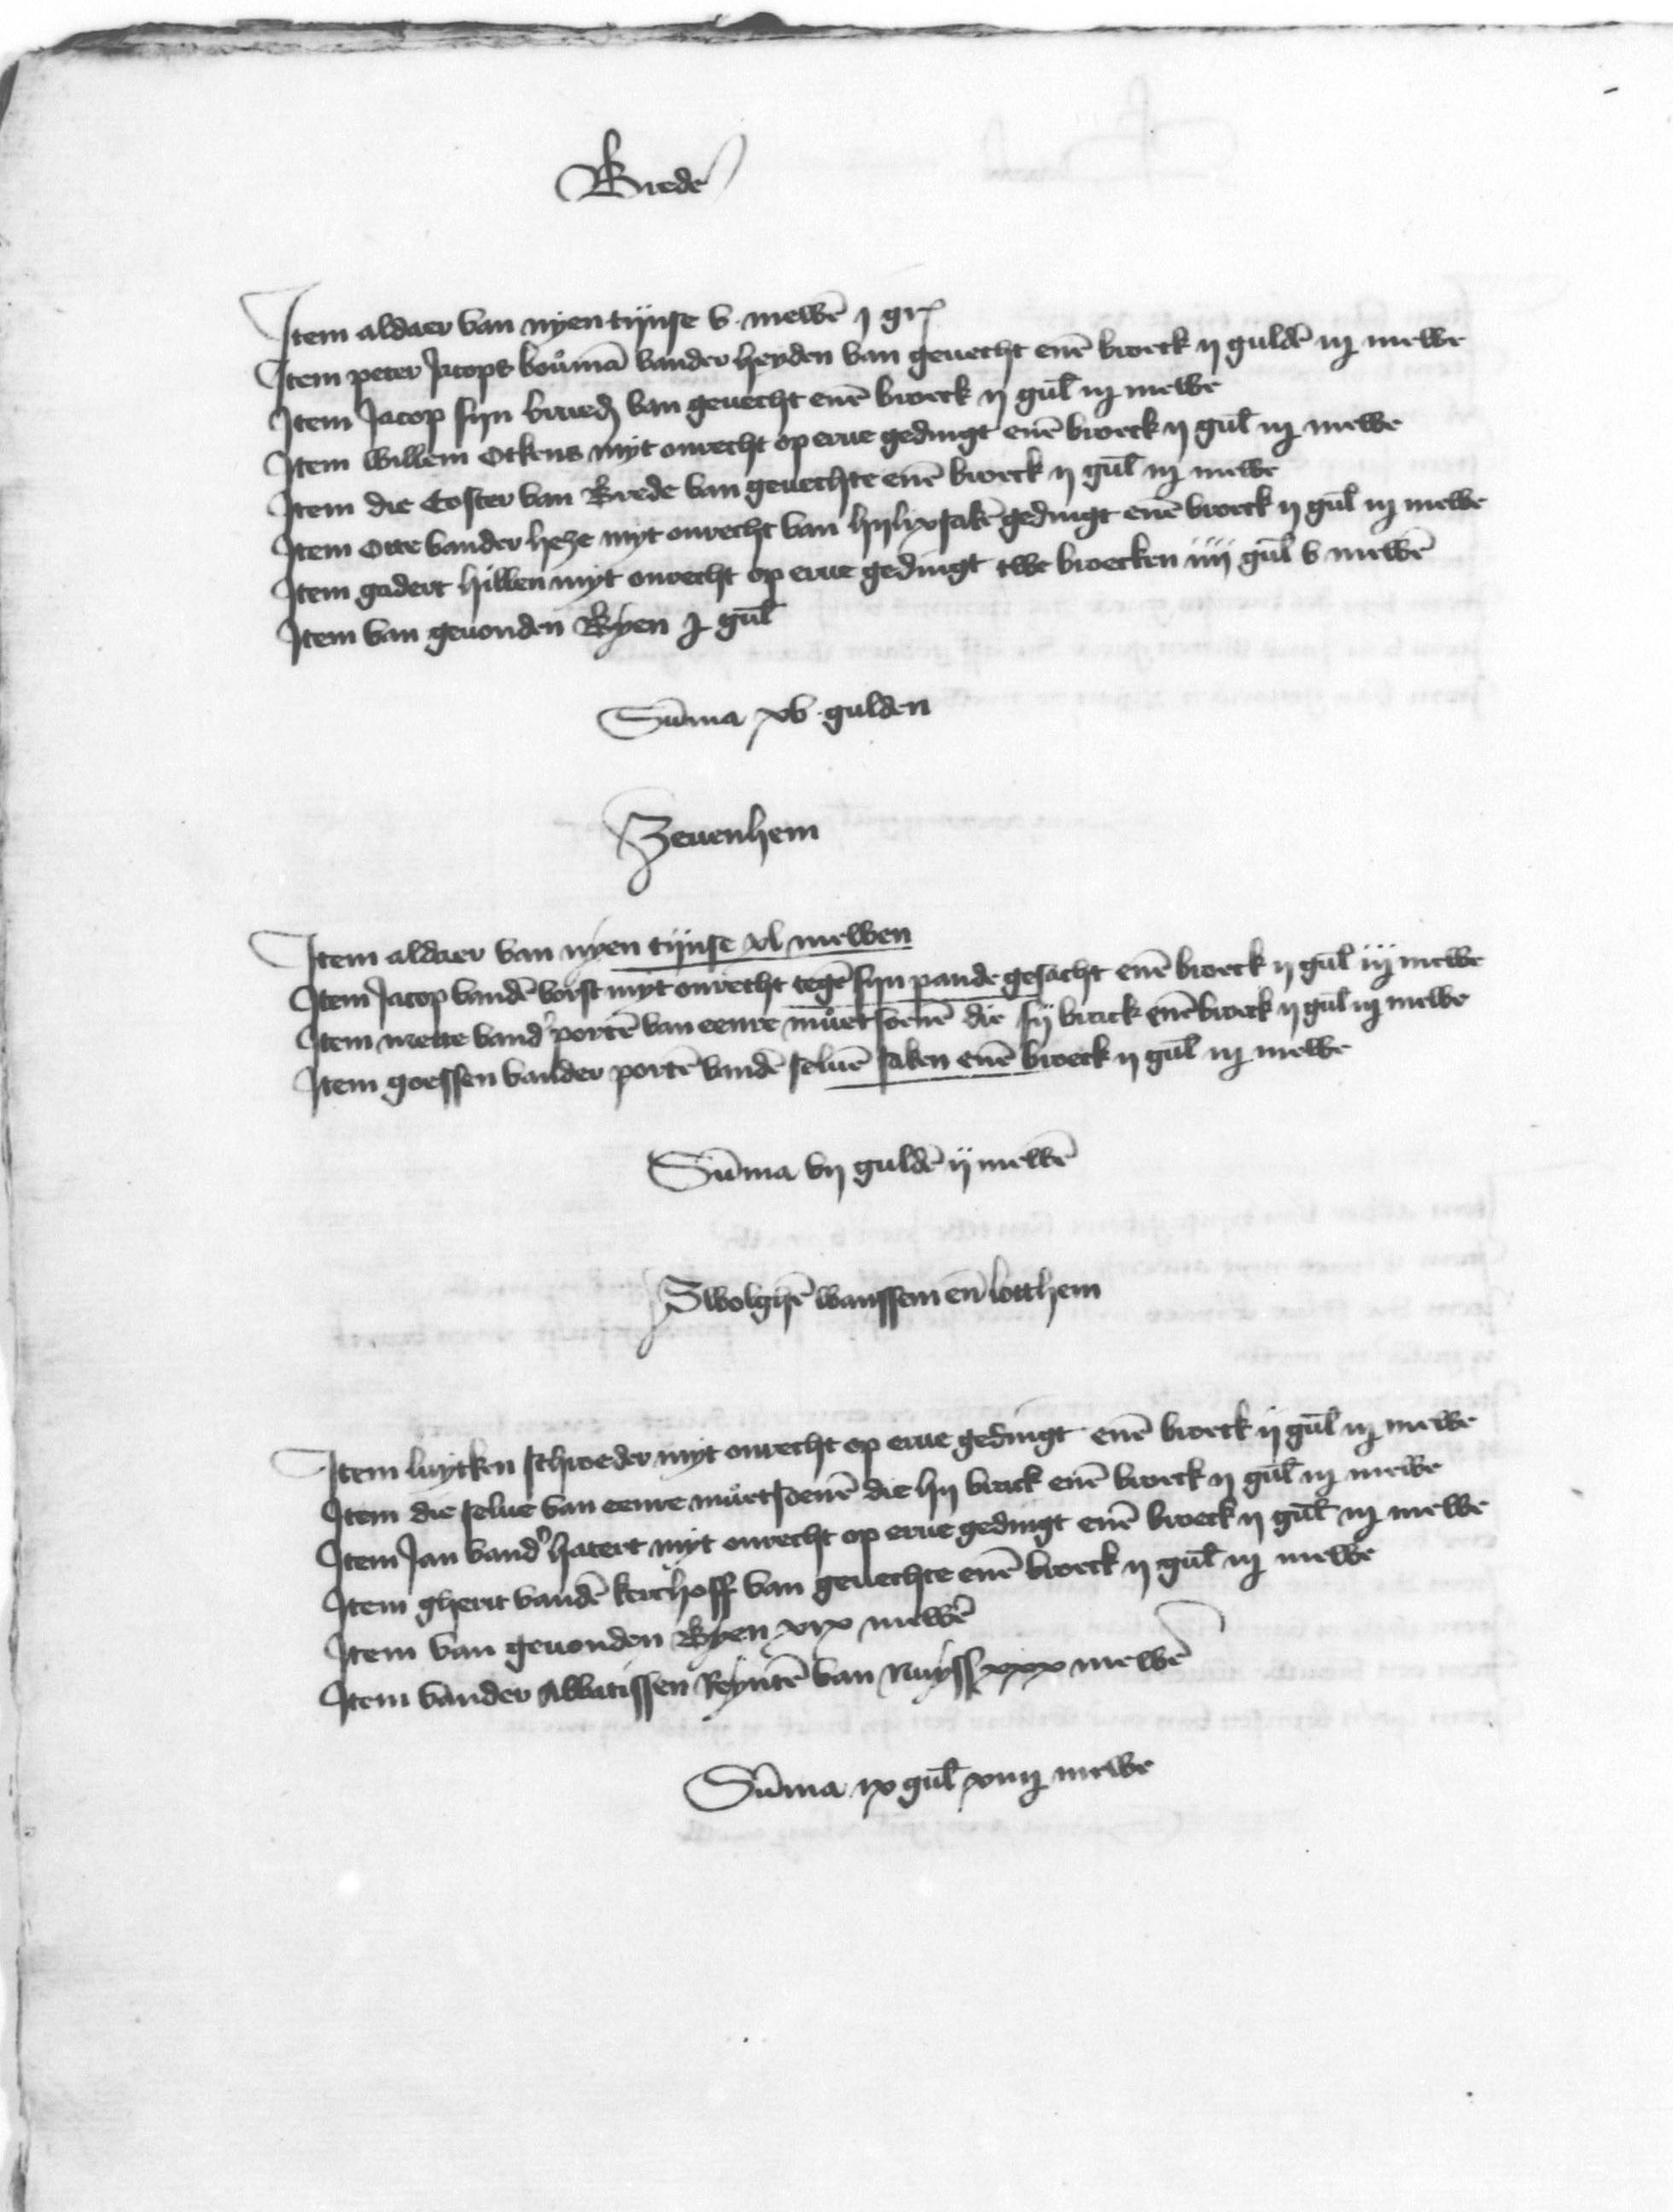 Brede
Item aldaer van nyen tijnse v mewē j gr
Item peter Jacops boůmā vander heyden van geuecht enē broeck ij guldē iij mewe
Item Jacop sijn brued van geuecht enē broeck ij gul iij mewe
Item willem Otkens myt onrecht op erue gedingt enē broeck ij gul iij mewe
Item die Coster van Brede van geuechte enē broeck ij gul iij mewe
Item Otte vander heze myt onrecht van hijlixsakē gedingt enē broeck ij gul iij mewe
Item godert hillen myt onrecht op erue gedingt twe broecken iiij gul v mewē
Item van geuonden Byen j gul
Sūma xv gulden
Zeuenhem
Item aldaer van nyen tijnse xl mewen
Item Jacop vandē vorst myt onrecht tegē sijn pande gesacht enē broeck ij gul iij mewe
Item mette vand portē van eenre můetsoenē die sij brack enē broeck ij gul iij mewe
Item goessen vander portē vandē seluē saken enē broeck ij gul iij mewe
Sūma vij guldē ij mewē
Swolghē wanssem eñ lotthem
Item luytken schroeder myt onrecht op erue gedingt enē broeck ij gul iij mewe
Item die selue van eenre můetsoenē die hij brack enē broeck ij gul iij mewe
Item Jan vand hatert myt onrecht op erue gedingt enē broeck ij gul iij mewe
Item gherit vandē kerchoff van geuechte enē broeck ij gul iij mewe
Item van geuonden Byen xix mewē
Item vander Abbatissen Reyntē van Nuyss xxx mewē
Sūma ix gul xiiij mewe